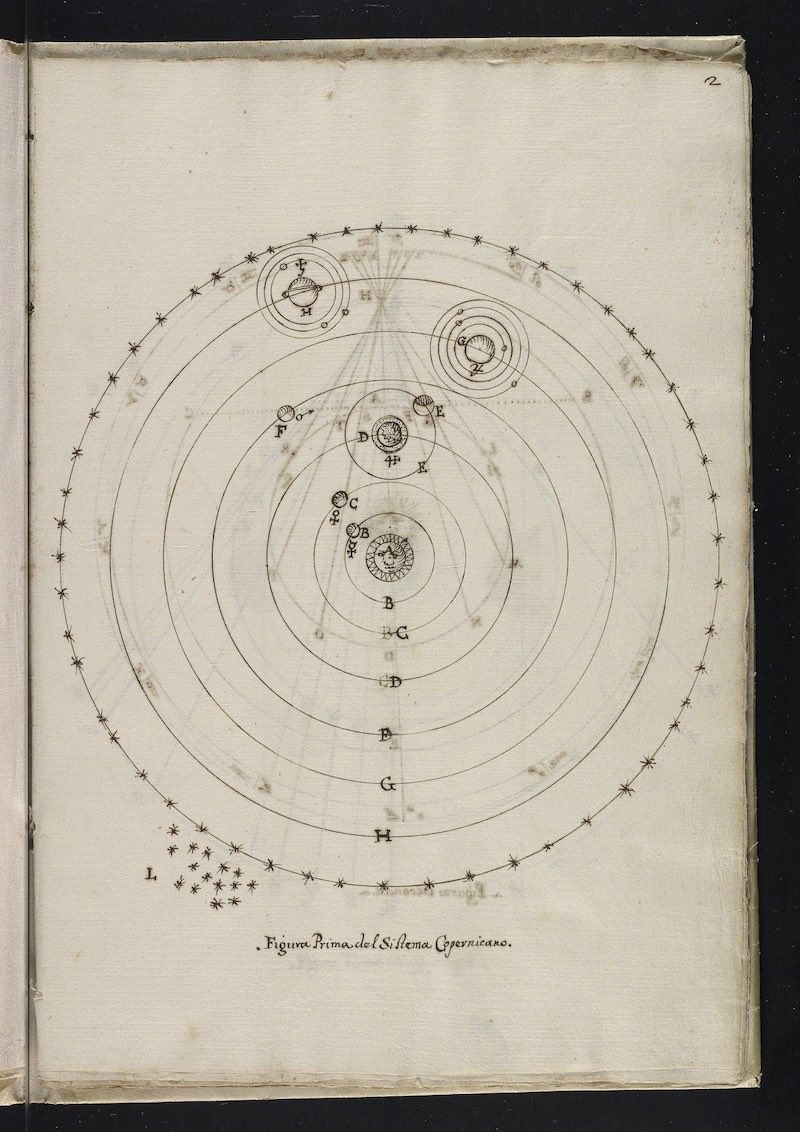 2
♄
H
G
♃
E
F
♂
D
E
C
♀
B
☿
A
B
C
D
F
G
H
L
. Figura Prima del Sistema Copernicano.